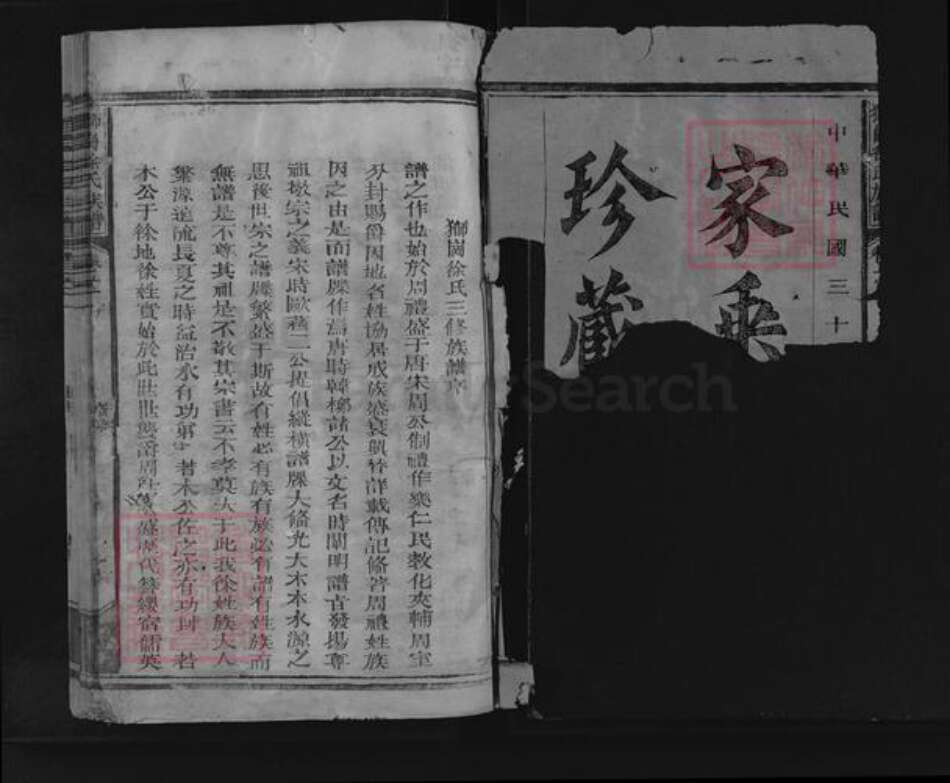 中華民國三十
家乘
珍藏
獅岡徐氏三修族譜序
譜之作也始於周禮盛于唐宋周公制禮作樂仁民教化夾輔周室
分封賜爵因地名姓協居成族盛衰興替詳載傳記條著周禮姓族
因之由是而譜牒作焉唐時韓柳諸公以文名時闡明譜旨發揚尊
祖敬宗之義宋時歐蘇二公提倡縱橫譜牒大備光大木本水源之
思後世宗之譜牒繁盛于斯故有姓必有族有族必有譜有姓族而
無譜是不尊其祖是不敬其宗書云不孝莫大于此我徐姓族大人
繁源遠流長夏之時益治水有功第 若木公佐之亦有功封 若
木公于徐地徐姓實始於此世世襲爵周 盛歷代簪纓宿儒英
Search